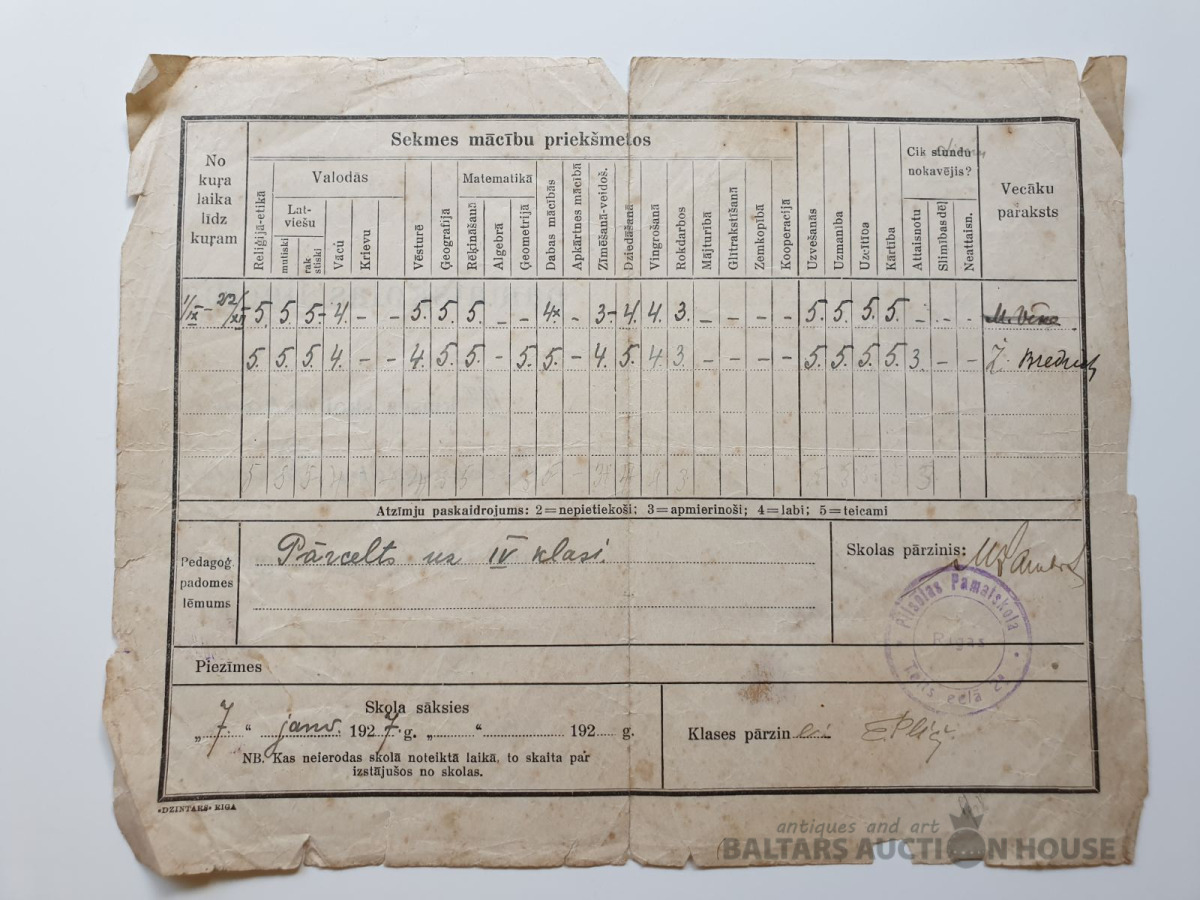 Sekmes mācību priekšmetos
No kuŗa laika līdz kuŗam
Reliģijā-ētikā
Valodās
Latviešu
mutiski
rakstiski
Vācu
Krievu
Vēsturē
Ģeografijā
Matematikā
Rēķināšanā
Algebrā
Ģeometrijā
Dabas mācībās
Apkārtnes mācībā
Zīmēšanā-veidoš.
Dziedāšanā
Vingrošanā
Rokdarbos
Mājturībā
Glītrakstīšanā
Zemkopībā
Kooperacijā
Uzvešanās
Uzmanība
Uzcītība
Kārtība
Cik stundu nokavējis?
Attaisnotu
Slimības dēļ
Neattaisn.
Vecāku paraksts
1/IX – 22/XII 5. 5. 5- 4. - - 5. 5. 5. - - 4x - 3- 4. 4. 3. - - - - 5. 5. 5. 5. - - -
5. 5. 5. 4. - - 4. 5. 5. - 5. 5. - 4. 5. 4 3. - - - - 5. 5. 5. 5. 3. - -
Atzīmju paskaidrojums: 2=nepietiekoši; 3=apmierinoši; 4=labi; 5=teicami
Pedagoģ. padomes lēmums
Pārcelts uz IV klasi.
Skolas pārzinis:
Rīgas
Piezīmes
Skola sāksies
„ 7. “ janv. 1927.g. „ “ 192 g.
NB. Kas neierodas skolā noteiktā laikā, to skaita par
izstājušos no skolas.
Klases pārzin
«DZINTARS» RIGA
antiques and art
BALTARS AUCTION HOUSE